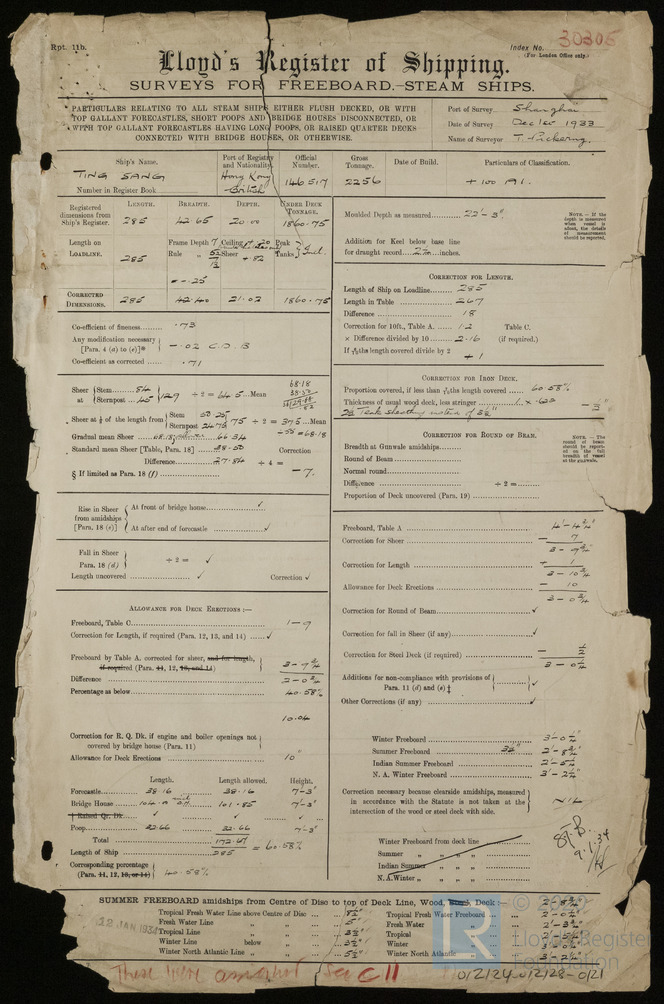 Rpt. 11b.
Index No. 30306
(For London Office only.)
Lloyd's Register of Shipping.
SURVEYS FOR FREEBOARD.—STEAM SHIPS.
PARTICULARS RELATING TO ALL STEAM SHIPS EITHER FLUSH DECKED, OR WITH
TOP GALLANT FORECASTLES, SHORT POOPS AND BRIDGE HOUSES DISCONNECTED, OR
WITH TOP GALLANT FORECASTLES HAVING LONG POOPS, OR RAISED QUARTER DECKS
CONNECTED WITH BRIDGE HOUSES, OR OTHERWISE.
Port of Survey Shanghai
Date of Survey Dec 1933
Name of Surveyor T. Pickering.
Ship's Name. Port of Registry and Nationality. Official Number. Gross Tonnage. Date of Build. Particulars of Classification.
TING SANG Hong Kong British 146517 2256 +100 A1.
Number in Register Book
Registered dimensions from Ship's Register. LENGTH. BREADTH. DEPTH. UNDER DECK TONNAGE.
285 42.65 20.00 1860.75
Length on LOADLINE. 285 Frame Depth 7 Ceiling Rule Sheer + .82 Peak Tanks
= -.25
CORRECTED DIMENSIONS. 285 42.40 21.02 1860.75
Moulded Depth as measured 22'-3"
NOTE.—If the depth is measured when vessel is afloat, the details of measurement should be reported.
Addition for Keel below base line
for draught record inches.
CORRECTION FOR LENGTH.
Length of Ship on Loadline 285
Length in Table 267
Difference 18
Correction for 10ft., Table A. 1.2 Table C.
× Difference divided by 10 2.16 (if required.)
If 6/10ths length covered divide by 2 + 1
Co-efficient of fineness .73
Any modification necessary [Para. 4 (a) to (e)]* -.02 C.D.B
Co-efficient as corrected .71
CORRECTION FOR IRON DECK.
Proportion covered, if less than 7/10ths length covered 60.58%
Thickness of usual wood deck, less stringer
Teak sheathing instead of 3½"
Sheer at Stem 84 Sternpost 45 129 ÷ 2 = 64.5 Mean
Sheer at ⅛ of the length from Stem 50.25 Sternpost 24.75 75 ÷ 2 = 37.5 Mean
÷ .55 = 68.18
Gradual mean Sheer 66.34
Standard mean Sheer [Table, Para. 18] 38.50 Correction
Difference 27.84 ÷ 4 =
§ If limited as Para. 18 (f) -7.
CORRECTION FOR ROUND OF BEAM.
NOTE.—The round of beam should be reported on the full breadth of vessel at the gunwale.
Breadth at Gunwale amidships
Round of Beam
Normal round
Difference ÷ 2 =
Proportion of Deck uncovered (Para. 19)
Rise in Sheer from amidships [Para. 18 (e)] At front of bridge house ✓
At after end of forecastle ✓
Fall in Sheer Para. 18 (d) ÷ 2 = ✓
Length uncovered ✓ Correction ✓
Freeboard, Table A 4'-4¾"
Correction for Sheer - 7
3-9¾"
Correction for Length + 1
3-10¾
Allowance for Deck Erections - 10
3-0¾
Correction for Round of Beam ✓
Correction for fall in Sheer (if any) ✓
Correction for Steel Deck (if required) - ½
3-0¼
Additions for non-compliance with provisions of Para. 11 (d) and (e)‡ ✓
Other Corrections (if any) ✓
ALLOWANCE FOR DECK ERECTIONS :—
Freeboard, Table C 1-9
Correction for Length, if required (Para. 12, 13, and 14) ✓
Freeboard by Table A. corrected for sheer, and for length, if required (Para. 11, 12, 13, and 14) 3-9¾
Difference 2-0¾
Percentage as below 40.58%
10.04
Correction for R. Q. Dk. if engine and boiler openings not covered by bridge house (Para. 11)
Allowance for Deck Erections 10"
Length. Length allowed. Height.
Forecastle 38.16 38.16 7'-3"
Bridge House 101.85 7'-3"
Raised Qr. Dk. ✓ ✓ ✓
Poop 22.66 22.66 7'-3"
Total 172.67 = 60.58%
Length of Ship 285
Corresponding percentage (Para. 11, 12, 13, or 14) 40.58%
Winter Freeboard 3'-0¼"
Summer Freeboard 2'-8¾"
Indian Summer Freeboard 2'-5¼"
N. A. Winter Freeboard 3'-2¼"
Correction necessary because clearside amidships, measured in accordance with the Statute is not taken at the intersection of the wood or steel deck with side. Nil
9.1.34
Winter Freeboard from deck line
Summer " " "
Indian Summer " " "
N. A. Winter " " "
SUMMER FREEBOARD amidships from Centre of Disc to top of Deck Line, Wood, Steel, Deck :— 2'-8¾"
Tropical Fresh Water Line above Centre of Disc 8½" Tropical Fresh Water Freeboard 2'-0¼"
Fresh Water Line " " 5" Fresh Water " 2'-3¾"
Tropical Line " " 3½" Tropical "
Winter Line below " 3½" Winter "
Winter North Atlantic Line " " 5½" Winter North Atlantic "
22 JAN 1934
© 2020
LR
Lloyd's Register
Foundation